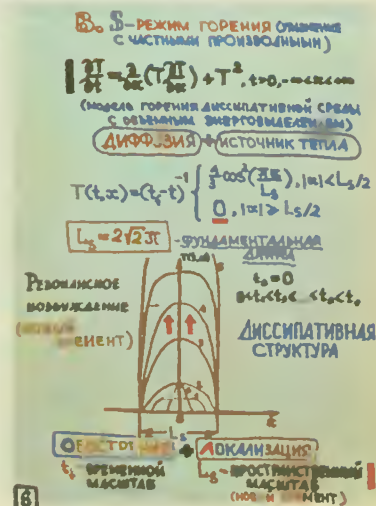 В. S-РЕЖИМ ГОРЕНИЯ (УРАВНЕНИЕ
С ЧАСТНЫМИ ПРОИЗВОДНЫМИ)
∂T/∂t = ∂/∂x (T ∂T/∂x) + T², t>0, -∞<x<+∞
(МОДЕЛЬ ГОРЕНИЯ ДИССИПАТИВНОЙ СРЕДЫ
С ОБЪЕМНЫМ ЭНЕРГОВЫДЕЛЕНИЕМ)
ДИФФУЗИЯ + ИСТОЧНИК ТЕПЛА
T(t,x)=(t_f-t)⁻¹ { 4/3 cos²(πx/L_s), |x|<L_s/2
0, |x|≥L_s/2
L_s = 2√2π - ФУНДАМЕНТАЛЬНАЯ
ДЛИНА
T(t,x)
t₀=0
РЕЗОНАНСНОЕ
ВОЗБУЖДЕНИЕ
ДИССИПАТИВНАЯ
СТРУКТУРА
L_s
0
x
ЛОКАЛИЗАЦИЯ
t_f - ВРЕМЕННОЙ
МАСШТАБ
L_s - ПРОСТРАНСТВЕННЫЙ
МАСШТАБ
6